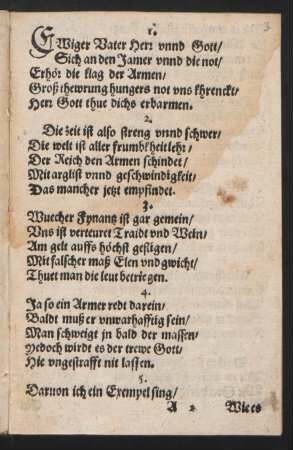 1.
EWiger Vater Herr vnnd Gott/
Sich an den Jamer vnnd die not/
Erhör die klag der Armen/
Groß thewrung hungers not vns khrenckt/
Herr Gott thue dichs erbarmen.
2.
Die zeit ist also streng vnnd schwer/
Die welt ist aller frumbkheit lehr/
Der Reich den Armen schindet/
Mit arglist vnnd geschwindigkeit/
Das mancher jetzt empfindet.
3.
Wuecher Fynantz ist gar gemein/
Vns ist verteuret Traidt vnd Wein/
Am gelt auffs höchst gestigen/
Mit falscher maß Elen vnd gwicht/
Thuet man die leut betriegen.
4.
Ja so ein Armer redt darein/
Baldt muß er vnwarhafftig sein/
Man schweigt jn bald der massen/
Yedoch wirdt es der trewe Gott/
Hie vngestrafft nit lassen.
5.
Daruon ich ein Exempel sing/
A 2 Wie es
3